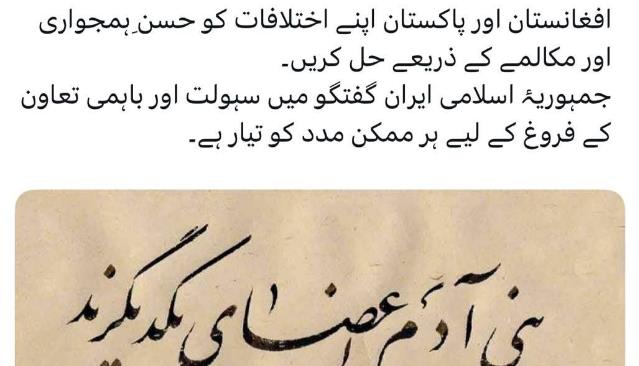 افغانستان اور پاکستان اپنے اختلافات کو حسنِ ہمجواری
اور مکالمے کے ذریعے حل کریں۔
جمہوریۂ اسلامی ایران گفتگو میں سہولت اور باہمی تعاون
کے فروغ کے لیے ہر ممکن مدد کو تیار ہے۔
بنی آدم اعضای یکدیگرند